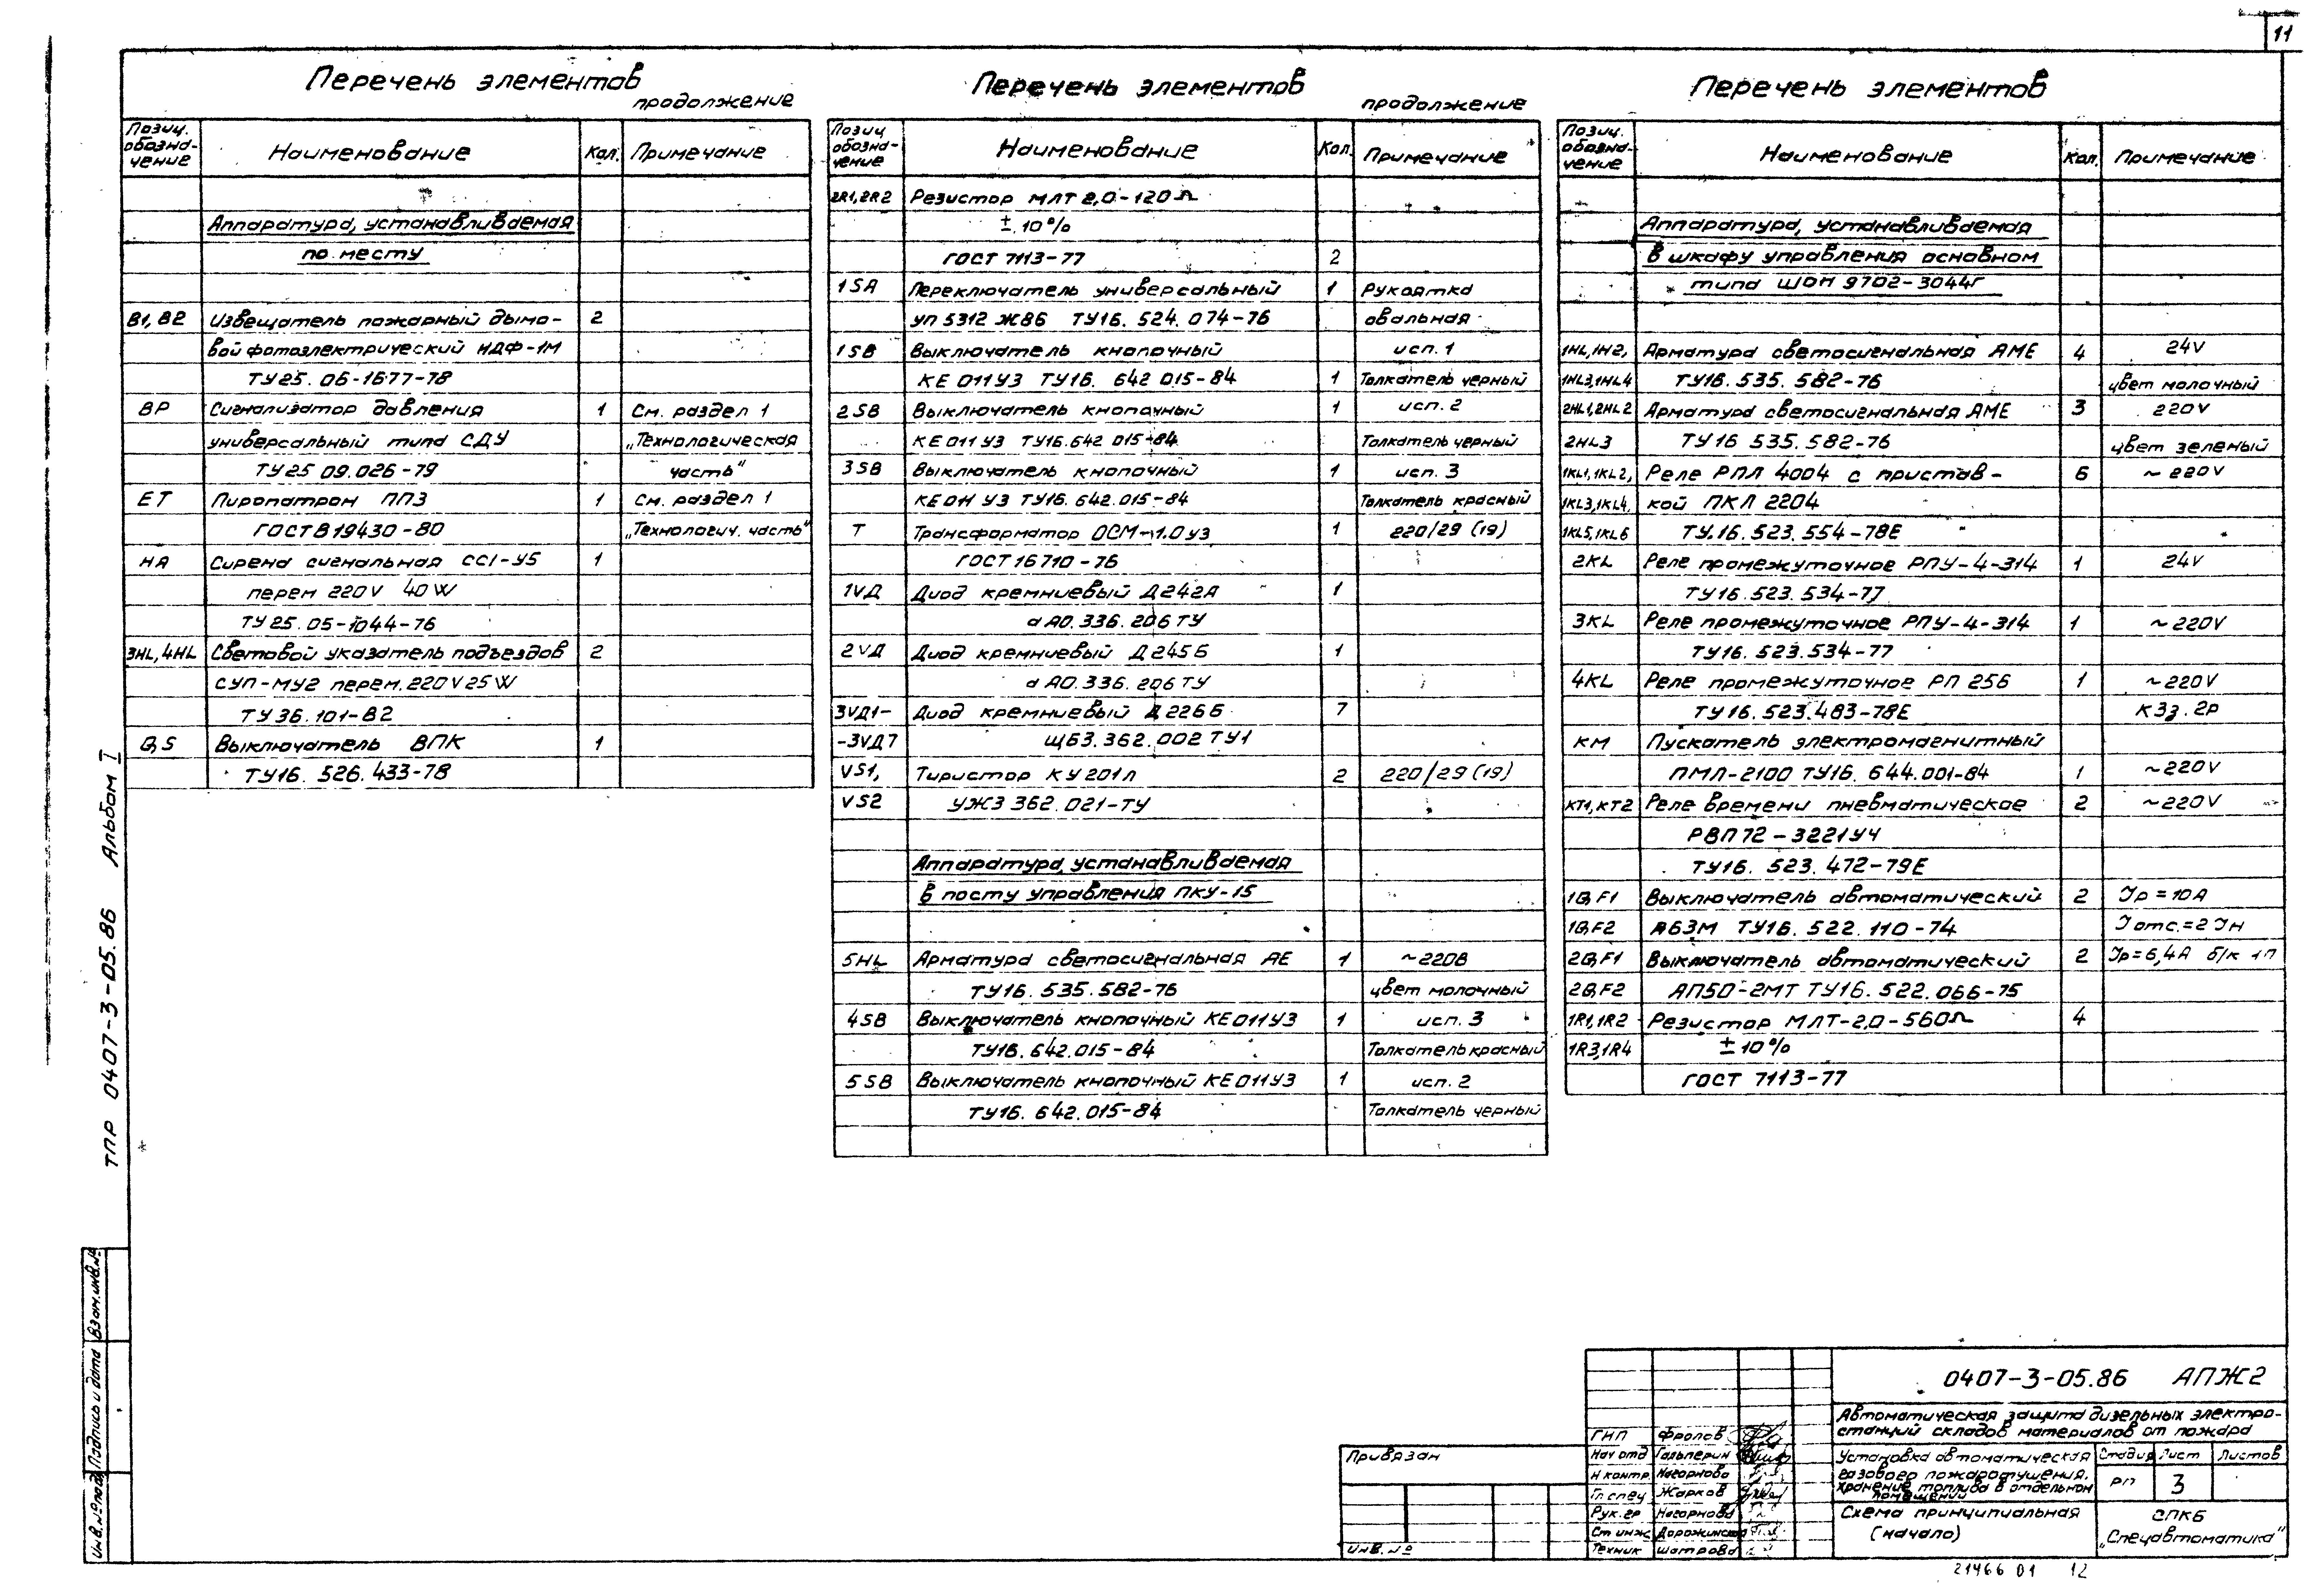 11
Перечень элементов
продолжение
Позиц. обозна-чение Наименование Кол. Примечание
Аппаратура, устанавливаемая
по месту
В1, В2 Извещатель пожарный дымо- 2
вой фотоэлектрический ИДФ-1М
ТУ25. 06-1677-78
ВР Сигнализатор давления 1 См. раздел 1
универсальный типа СДУ „Технологическая
ТУ25 09.026-79 часть"
ЕТ Пиропатрон ПП3 1 См. раздел 1
ГОСТВ19430-80 „Технологич. часть"
НА Сирена сигнальная СС1-У5 1
перем 220V 40W
ТУ25.05-1044-76
3HL, 4HL Световой указатель подъездов 2
СУП-МУ2 перем. 220V25W
ТУ36.101-82
Q, S Выключатель ВПК 1
ТУ16. 526. 433-78
Перечень элементов
продолжение
Позиц обозна-чение Наименование Кол. Примечание
2R1, 2R2 Резистор МЛТ 2,0-120Ω
± 10%
ГОСТ 7113-77 2
1SA Переключатель универсальный 1 Рукоятка
УП 5312 Ж86 ТУ16. 524. 074-76 овальная
1SB Выключатель кнопочный исп. 1
КЕ 011У3 ТУ16. 642 015-84 1 Толкатель черный
2SB Выключатель кнопочный 1 исп. 2
КЕ011 У3 ТУ16.642 015-84 Толкатель черный
3SB Выключатель кнопочный 1 исп. 3
КЕ011 У3 ТУ16. 642.015-84 Толкатель красный
Т Трансформатор ОСМ-1.0У3 1 220/29 (19)
ГОСТ 16710-76
1VД Диод кремниевый Д242А 1
аА0.336.206ТУ
2VД Диод кремниевый Д245Б 1
аА0.336.206ТУ
3VД1- Диод кремниевый Д226Б 7
-3VД7 ЩБ3.362.002 ТУ1
VS1, Тиристор КУ201Л 2 220/29(19)
VS2 УЖ3 362.021-ТУ
Аппаратура, устанавливаемая
в посту управления ПКУ-15
5HL Арматура светосигнальная АЕ 1 ~220В
ТУ16. 535. 582-76 цвет молочный
4SB Выключатель кнопочный КЕ011У3 1 исп. 3
ТУ16. 642.015-84 Толкатель красный
5SB Выключатель кнопочный КЕ011У3 1 исп. 2
ТУ16. 642.015-84 Толкатель черный
Перечень элементов
Позиц. обозна-чение Наименование Кол. Примечание
Аппаратура, устанавливаемая
в шкафу управления основном
типа ШОН 9702-3044Г
1HL,1H2, Арматура светосигнальная АМЕ 4 24V
1HL3,1HL4 ТУ16. 535. 582-76 цвет молочный
2HL1,2HL2 Арматура светосигнальная АМЕ 3 220V
2HL3 ТУ16 535. 582-76 цвет зеленый
1KL1,1KL2, Реле РПЛ 4004 с пристав- 6 ~220V
1KL3,1KL4, кой ПКЛ 2204
1KL5,1KL6 ТУ.16. 523. 554-78Е
2KL Реле промежуточное РПУ-4-314 1 24V
ТУ16. 523. 534-77
3KL Реле промежуточное РПУ-4-314 1 ~220V
ТУ16. 523.534-77
4KL Реле промежуточное РП 256 1 ~220V
ТУ16. 523.483-78Е К 3з. 2р
КМ Пускатель электромагнитный
ПМЛ-2100 ТУ16. 644.001-84 1 ~220V
КТ1, КТ2 Реле времени пневматическое 2 ~220V
РВП72-3221У4
ТУ16. 523. 472-79Е
1Q,F1 Выключатель автоматический 2 Iр=10А
1Q,F2 А63М ТУ16. 522. 110-74 Iотс.=2Iн
2Q,F1 Выключатель автоматический 2 Iр=6,4А б/к 1П
2Q,F2 АП50-2МТ ТУ16. 522. 066-75
1R1, 1R2 Резистор МЛТ-2,0-560Ω 4
1R3,1R4 ± 10%
ГОСТ 7113-77
ТПР 0407-3-05.86 Альбом I
Взам.инв.№
Подпись и дата
Инв.№подл
Привязан
Инв. №
ГИП Фролов
Нач отд Гальперин
Н контр. Нагорнова
Гл спец Жарков
Рук. гр Нагорнова
Ст инж Дорожинская
Техник Шатрова
0407-3-05.86 АПЖ2
Автоматическая защита дизельных электро-
станций складов материалов от пожара
Установка автоматическая
газового пожаротушения.
Хранение топлива в отдельном
помещении
Стадия Лист Листов
РП 3
Схема принципиальная
(начало)
СПКБ
„Спецавтоматика"
21466 01 12